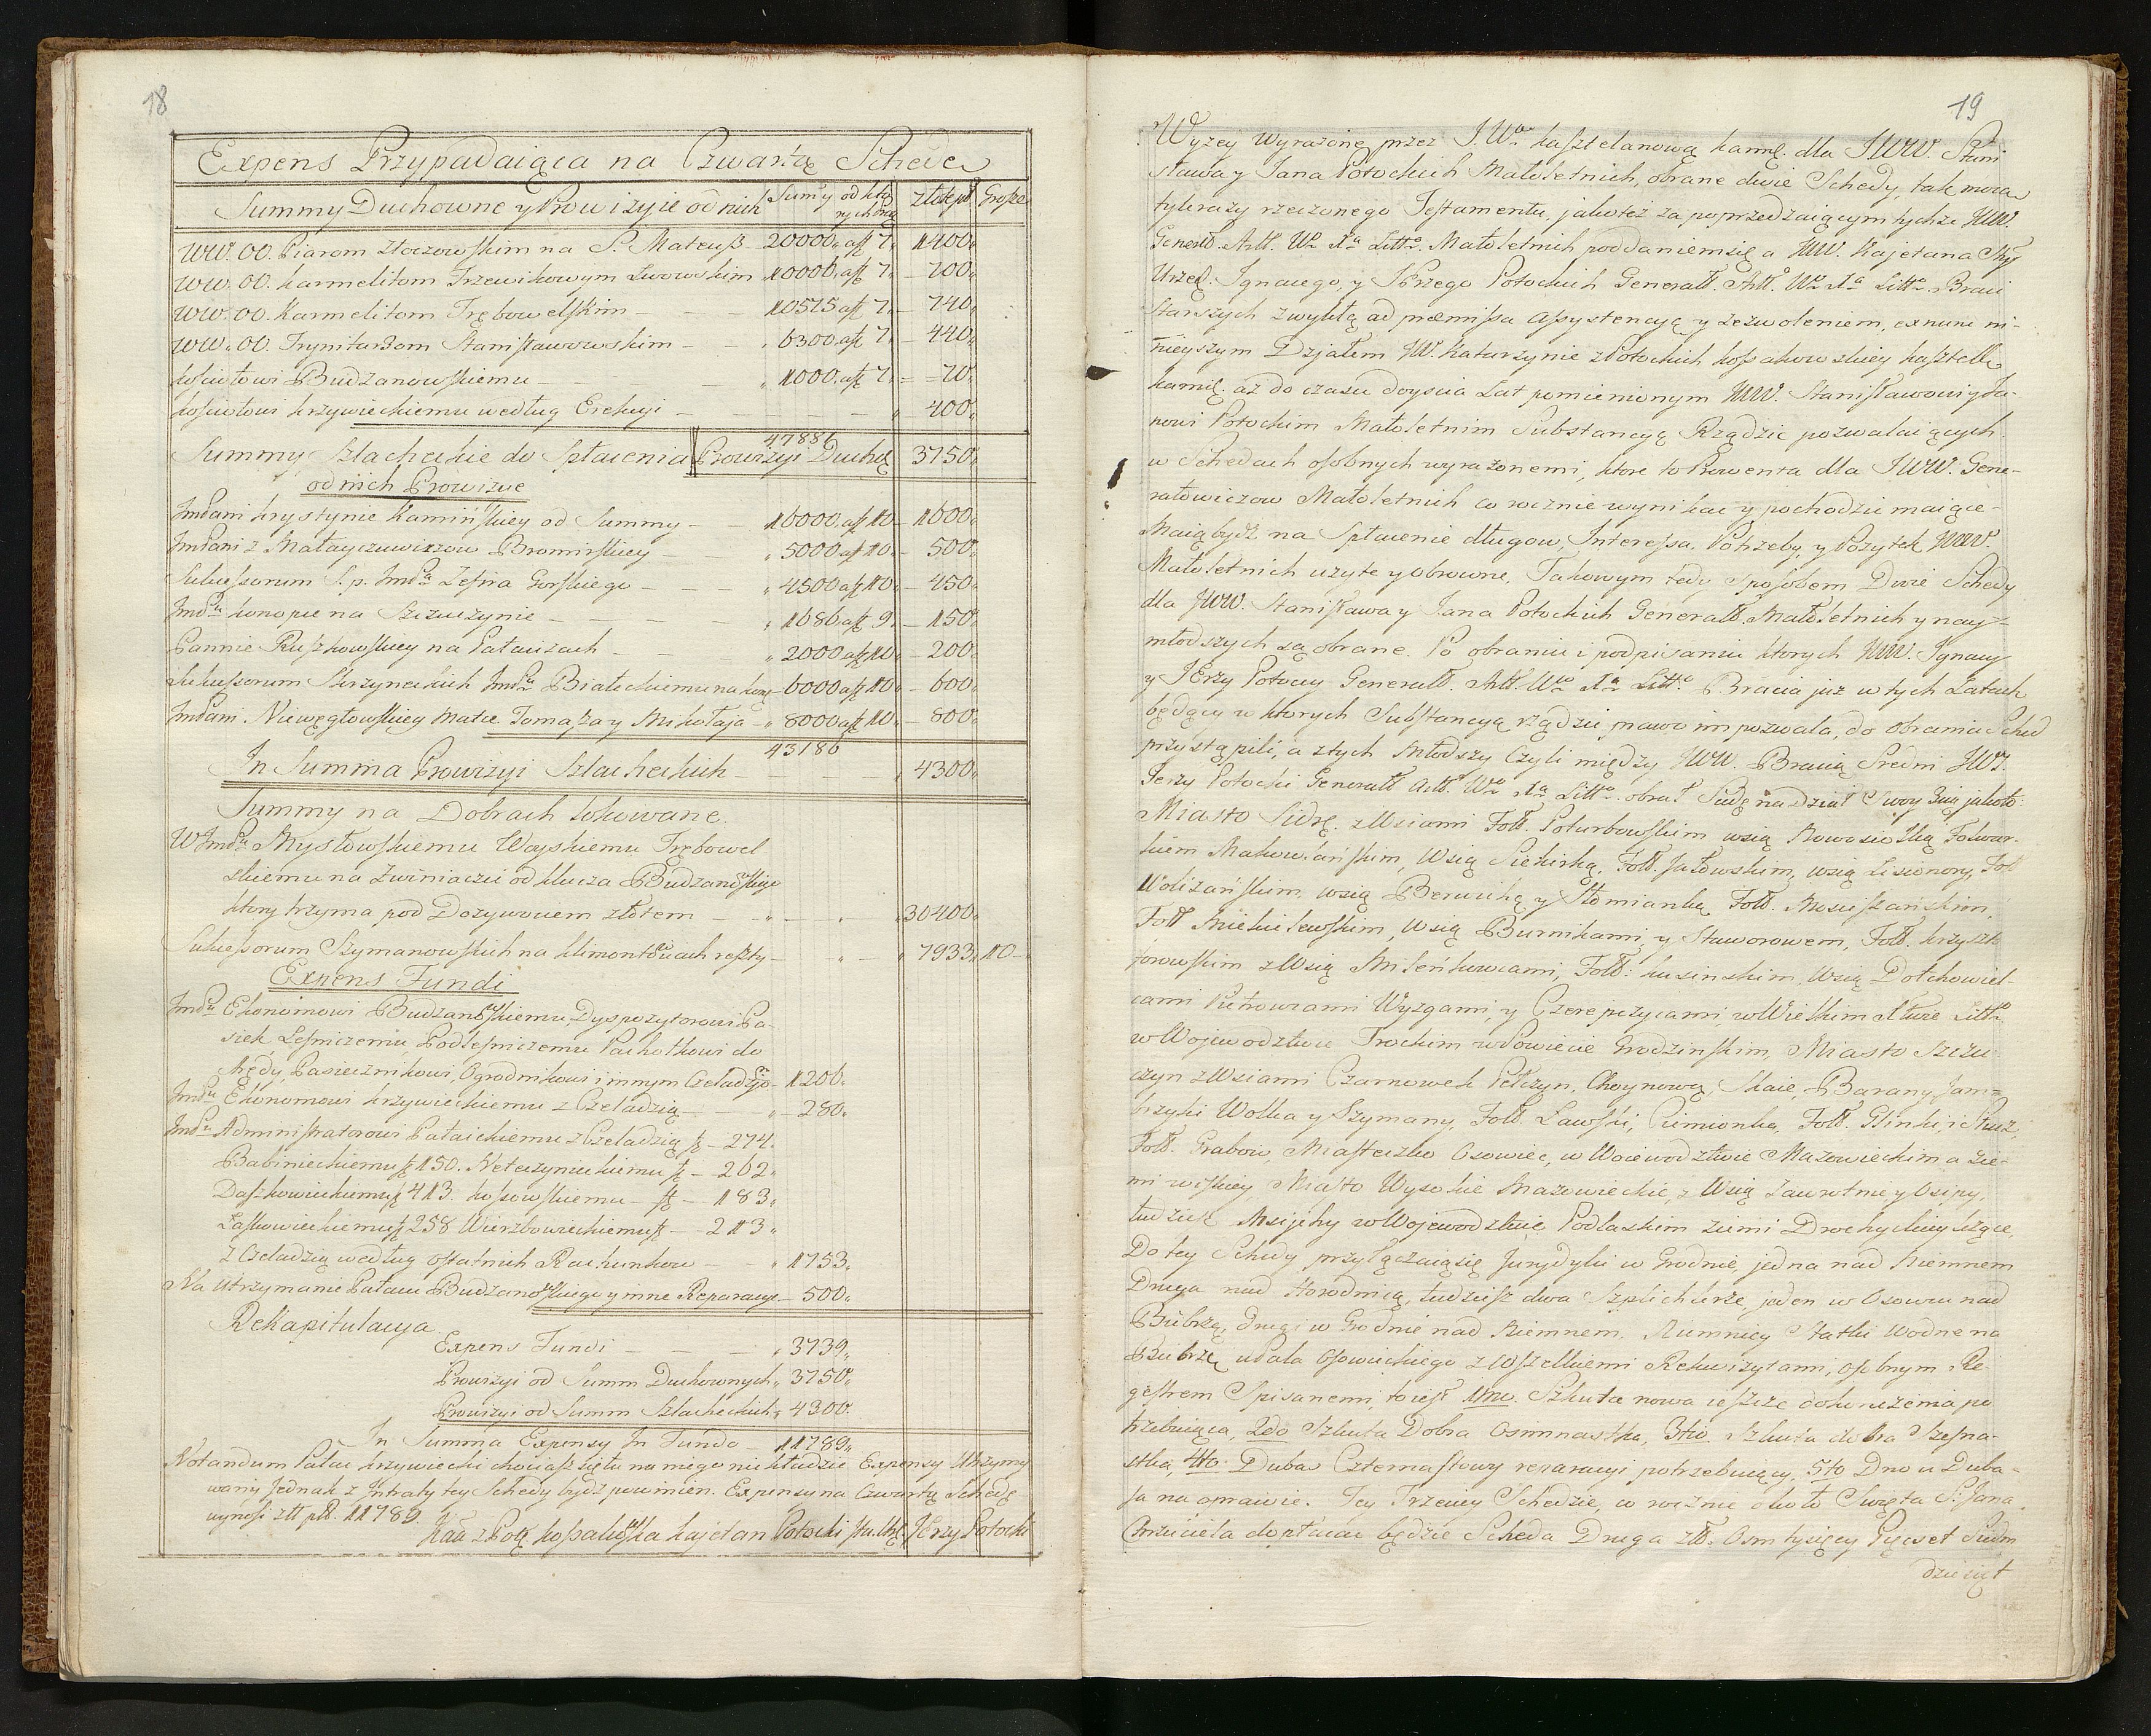 18
Expens Przypadaiąca na Czwartą Schedę
Summy Duchowne y Prowizyie od nich Sumy od kto rych idą Złote pol Grosze
WW. OO. Piarom Złoczowskim na S. Mateusz - 20000. a ft 7. 1400.
WW. OO. Karmelitom Trzewikowym Lwowskim 10000. a ft 7. - 700.
WW. OO. Karmelitom Trębowelskim - - - 10575 a ft 7. - 740.
WW. OO. Trynitarzom Stanisławowskim - - 6300. a ft 7. - 440.
kościołowi Budzanowskiemu - - - 1000. a ft 7. - 70.
kościołowi krzywieckiemu według Erekcyi - - - - 400.
47886
Summy Szlacheckie do Spłacenia Prowizyi Duchȩ 3750.
od nich Prowizye
ImPani krystynie Kamińskiey od Summy - - 16000. a ft 10 - 1600.
ImPani z Małayczuwiczow Bromirskiey - - 5000 a ft 10. - 500.
Sukcessorum S. p. ImPa Zefira Gorskiego - - - 4500 a ft 10. - 450.
ImPu konopce na Szczuczynie - - - - 1686 a ft 9. - 150.
Pannie Ruszkowskiey na Pałaszach - - - 2000 a ft 10. - 200.
Sukcessorum Skrzyneckich ImPu Białeckiemu na 6000 a ft 10. - 600.
ImPani Niewęgłowskiey Matce Tomasza y Mikołaja - 8000 a ft 10. - 800.
43186
In Summa Prowizyi Szlacheckich - - - - 4300.
Summy na Dobrach lokowane.
W ImPu Mysłowskiemu Woyskiemu Trębowel
skiemu na Zwiniaczu od klucza Budzanowskiego
ktory trzyma pod Dożywociem złotem - - - - 30400.
Sukcessorum Szymanowskich na klimontowicach reszty - - - 7933. 10 -
Expens Fundi
ImPu Ekonomowi Budzanowskiemu, Dyspozytorowi Pa-
siek, Leśniczemu, Podleśniczemu Pachołkowi do
Mędy, Pasiecznikowi, Ogrodnikowi i innym Czeladzi 1206.
ImPu Ekonomowi krzywieckiemu z Czeladzią - - - 280.
ImPu Administratorowi Pałaickiemu z Czeladzią ft - 274.
Babinieckiemu ft 150. Neteczynieckiemu ft - 262.
Daszkowieckiemu ft 413. kossowskiemu - ft - 183.
Laskowieckiemu ft 258 Wierzbowieckiemu ft - 213.
z Czeladzią według ostatnich Rachunkow - - 1753.
Na utrzymanie Pałacu Budzanowskiego y inne Reparacye - 500.
Rekapitulacya
Expens Fundi - - - 3739.
Prowizyi od Summ Duchownych. 3750.
Prowizyi od Summ Szlacheckich. 4300.
In Summa Expensy In Fundo - 11789.
Notandum Pałac krzywiecki chociasz się tu na niego nie kładzie Expensy utrzymy
wany Jednak z Intraty tey Schedy bydz powinien. Expensy na Czwartą Schedę
wynosi złt pol. 11789.
Kna z Potȩ kossakowska kajetan Potocki Jerzy Potocki
19
Wyżey Wyrażone przez J. W. kasztelanową kamȩ. dla JWW. Stani
sława y Jana Potockich Małoletnich, obrane dwie Schedy, tak mocą
tylerazy rzeczonego Testamentu, jakoteż za poprzedzaiącym tychże JWW.
Generłł. Artł. Wo Xa Litto. Małoletnich poddaniem się a JWW. Kajetana
Urzęd. Ignacego, y JErzego Potockich Generałł. Artł. Wo Xa Litto. Braci
Starszych zwykłą ad præmissa Assystencyą y zezwoleniem, ex nunc ni-
nieyszym Działem JW. Katarzynie z Potockich kossakowskiey kasztell
kamȩ. aż do czasu doyscia Lat pomienionym JWW. Stanisławowi y Ja-
nowi Potockim Małoletnim Substancyą Rządzic pozwalaiących
w Schedach osobnych wyrażonemi, ktore to Prowenta dla JWW. Gene-
rałowiczow Małoletnich co rocznie wynikac y pochodzic maiące
Maią bydź na Spłacenie długow, Interessa, Potrzeby, y Pożytek JWW.
Małoletnich użyte y obrocone. Takowym tedy Sposobem Dwie Schedy
dla JWW. Stanisława y Jana Potockich Generałł. Małoletnich y nay-
młodszych są obrane. Po obraniu i podpisaniu ktorych JWW. Ignacy
y JErzy Potoccy Generałł. Artł. Wo Xa Litto. Bracia już w tych Latach
będący w ktorych Substancyą rządzic prawo im pozwala, do obrania Sched
przystąpili, a z tych Młodszy Czyli między JWW. Bracią Sredni JW.
Jerzy Potocki Generałł Artł. Wo Xa Litto. obrał Sidrę na Dział Swoy 3cią jakoto:
Miasto Sidrę. z Wsiami Folł. Poturbowskim wsią Nowosiołką Folwar-
kiem Makowlańskim, Wsią Siekierką, Folł. Jałowskim, wsią Lisonory, Fol
Wolizańskim, wsią Berwichą y Słomianką Folł. Mosieszańskim,
Folł Miekielewskim, Wsią Burnikami, y Staworowem, Folł. krzyszto
forowskim z Wsią Mileńkowcami, Folł: kusinskim, Wsią Dołchowiel-
cami Pietrowcami Wyzgami, y Czerepszycami, w Wielkim Xtwie Litt.
w Wojewodztwie Trockim w Powiecie Grodzinskim, Miasto Szczu-
czyn z Wsiami Czarnowek Pełczyn, Choynową, Skaie, Barany, Jam-
brzyki Wolka y Szymany, Folł. Ławski, Ciemionka, Folł. Glinki,
Folł. Grabow, Miasteczko Osowiec, w Wojewodztwie Mazowieckim a Zie-
mi Wiskiey, Miasto Wysokie Mazowieckie, z Wsią Zawrotnie y Osipy,
tudzież Msijchy w Wojewodztwie Podlaskim Ziemi Drohyckiey leżące,
Do tey Schedy przyłączaią się Jurydyki w Grodnie, jedna nad Niemnem
Druga nad Horodnicą, tudziesz dwa Szpichlerze, jeden w Osowcu nad
Biebrzą, drugi w Grodnie nad Niemnem. Niemniey Statki Wodne na
Biebrzę udała Osowieckiego z Wszelkiemi Rekwizytami, osobnym Re
gestrem Spisanemi, to iest 1mo. Szkuta nowa ieszcze dokończenia po
trzebuiąca, 2do Szkuta Dobra Osimnastka, 3tio. Szkuta dobra Szesna-
stka, 4to. Dubas Czternastowy reparacyi potrzebuiący, 5to Dno u Duba-
sa na oprawie. Tey Trzeciey Schedzie, co rocznie około Swięta S. Jana
Chrzciciela dopłacac będzie Scheda Druga złł. Osm tysięcy Pięcset Siedm
dziesiąt